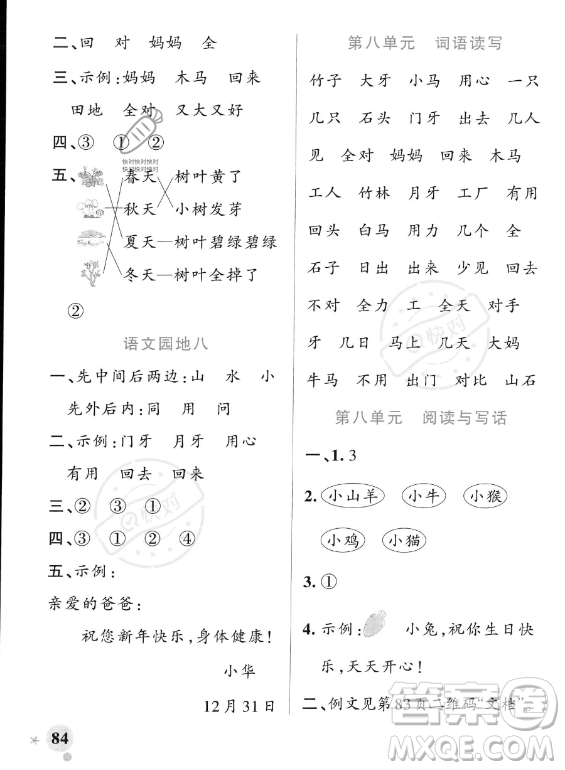 二、回 对 妈妈 全
三、示例:妈妈 木马 回来
田地 全对 又大又好
四、③ ① ②
五、
春天 树叶黄了
秋天 小树发芽
夏天 树叶碧绿碧绿
冬天 树叶全掉了
②
语文园地八
一、先中间后两边:山 水 小
先外后内:同 用 问
二、示例:门牙 月牙 用心
有用 回去 回来
三、② ③ ①
四、③ ① ② ④
五、示例:
亲爱的爸爸:
祝您新年快乐,身体健康!
小华
12月31日
84
第八单元 词语读写
竹子 大牙 小马 用心 一只
几只 石头 门牙 出去 几人
见 全对 妈妈 回来 木马
工人 竹林 月牙 工厂 有用
回头 人力 马力 用力 个个
石子 日出 出来 少见 回去
不对 全力 工 全天 对手
牙 几日 马上 几天 大妈
牛马 不用 出门 对比 山石
第八单元 阅读与写话
一、1. 3
2. 小山羊 小牛 小猴
小鸡 小猫
3. ①
4. 示例: 小兔,祝你生日快
乐,天天开心!
二、例文见第83页二维码“文档”。
快对快对快对
快对快对快对
快对
快对
答案圈
MXQE.COM